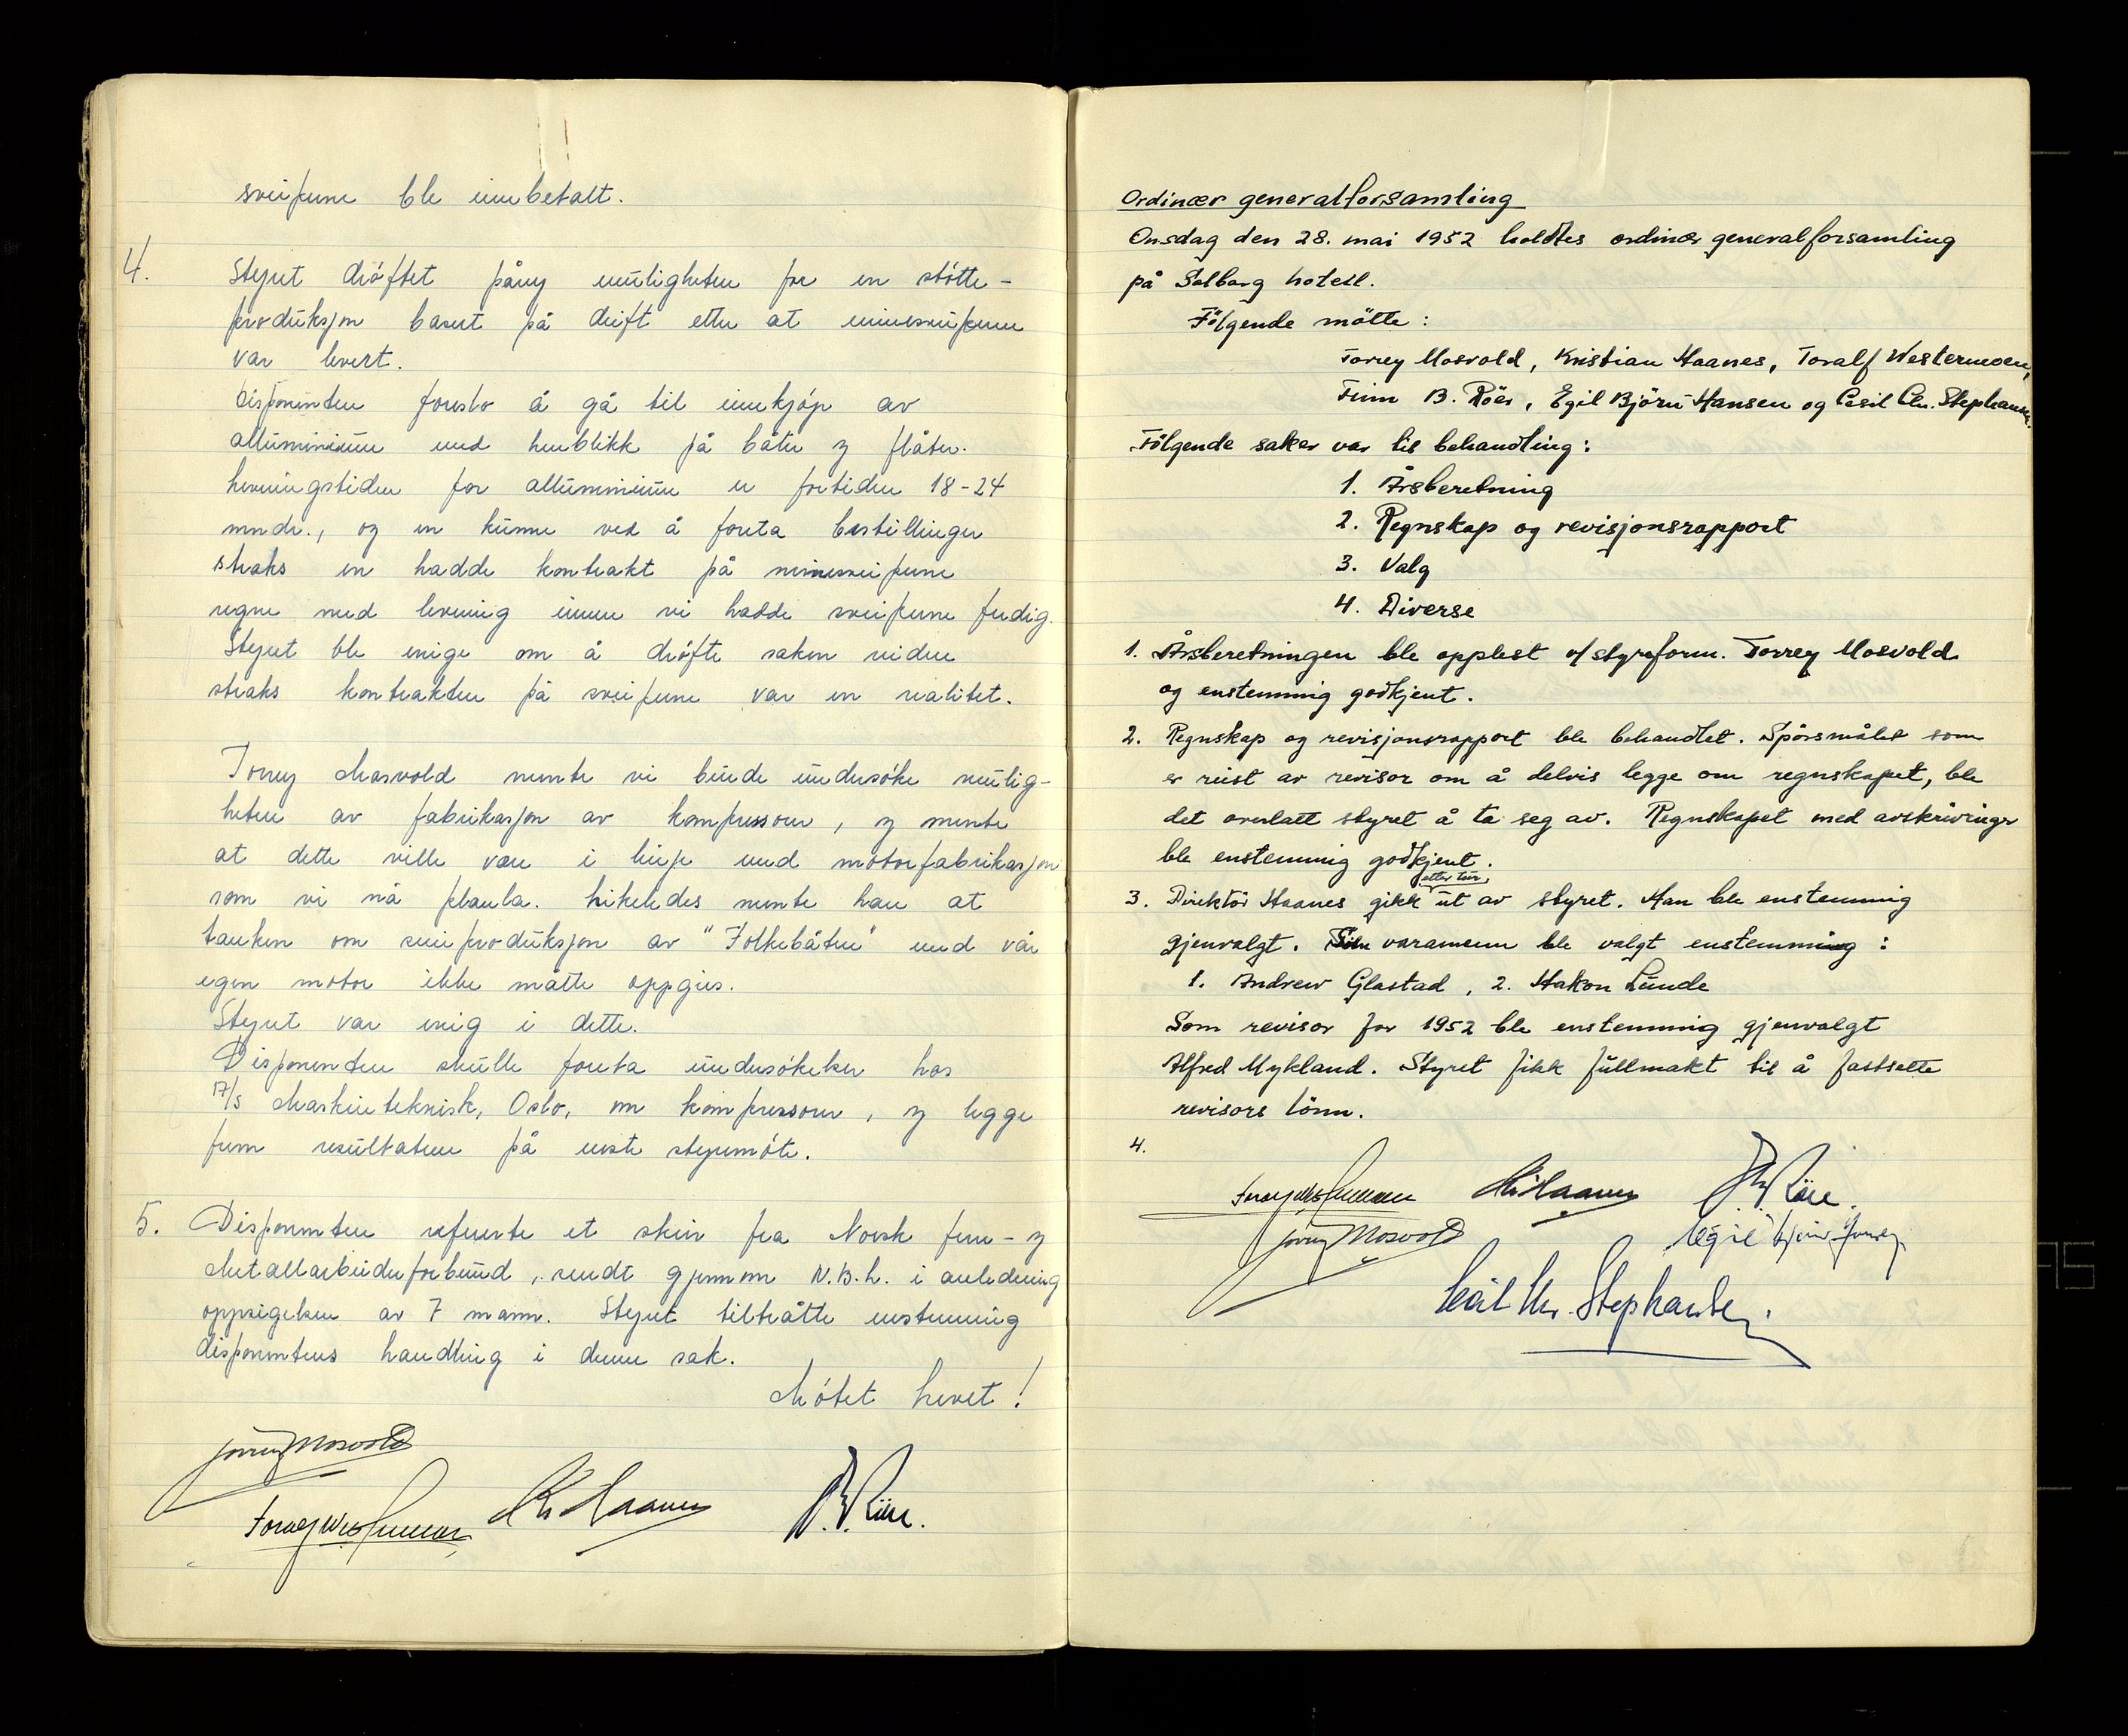 sveiperne ble innbetalt.
4. Styret drøftet påny muligheten for en støtte-
produksjon basert på drift etter at minesveiperne
var levert.
Disponenten foreslo å gå til innkjøp av
alluminium med henblikk på båter og flåter.
Leveringstiden for alluminium er fortiden 18-24
mndr., og en kunne ved å foreta bestillinger
straks en hadde kontrakt på minesveiperne
regne med levering innen vi hadde sveiperne ferdig.
Styret ble enige om å drøfte saken videre
straks kontrakten på sveiperne var en realitet.
Torrey Mosvold mente vi burde undersøke mulig-
heten av fabrikasjon av kompressorer, og mente
at dette ville være i linje med motorfabrikasjon
som vi nå planla. Likeledes mente han at
tanken om serieproduksjon av "Folkebåten" med vår
egen motor ikke måtte oppgies.
Styret var enig i dette.
Disponenten skulle foreta undersøkelser hos
A/S Maskinteknisk, Oslo, om kompressorer, og legge
frem resultatene på neste styremøte.
5. Disponenten refererte et skriv fra Norsk Jern- og
Metallarbeiderforbund, sendt gjennom N.B.L. i anledning
oppsigelsen av 7 mann. Styret tiltrådte enstemmig
disponentens handling i denne sak.
Møtet hevet!
Torrey Mosvold
Toralf Westermoen Kr. Haanes F. B. Röer.
Ordinær generalforsamling
Onsdag den 28. mai 1952 holdtes ordinær generalforsamling
på Solborg hotell.
Følgende møtte:
Torrey Mosvold, Kristian Haanes, Toralf Westermoen,
Finn B. Röer, Egil Björn Hansen og Cecil Chr. Stephansen.
Følgende saker var til behandling:
1. Årsberetning
2. Regnskap og revisjonsrapport
3. Valg
4. Diverse
1. Årsberetningen ble opplest v/styreform. Torrey Mosvold
og enstemmig godkjent.
2. Regnskap og revisjonsrapport ble behandlet. Spørsmålet som
er reist av revisor om å delvis legge om regnskapet, ble
det overlatt styret å ta seg av. Regnskapet med avskrivinger
ble enstemmig godkjent.
etter tur,
3. Direktör Haanes gikk ut av styret. Han ble enstemmig
gjenvalgt. Som varamenn ble valgt enstemmig:
1. Andrew Glastad, 2. Håkon Lunde
Som revisor for 1952 ble enstemmig gjenvalgt
Alfred Mykland. Styret fikk fullmakt til å fastsette
revisors lönn.
4.
Toralf Westermoen Kr. Haanes F. B. Röer.
Torrey Mosvold Egil Björn Hansen
Cecil Chr. Stephansen.